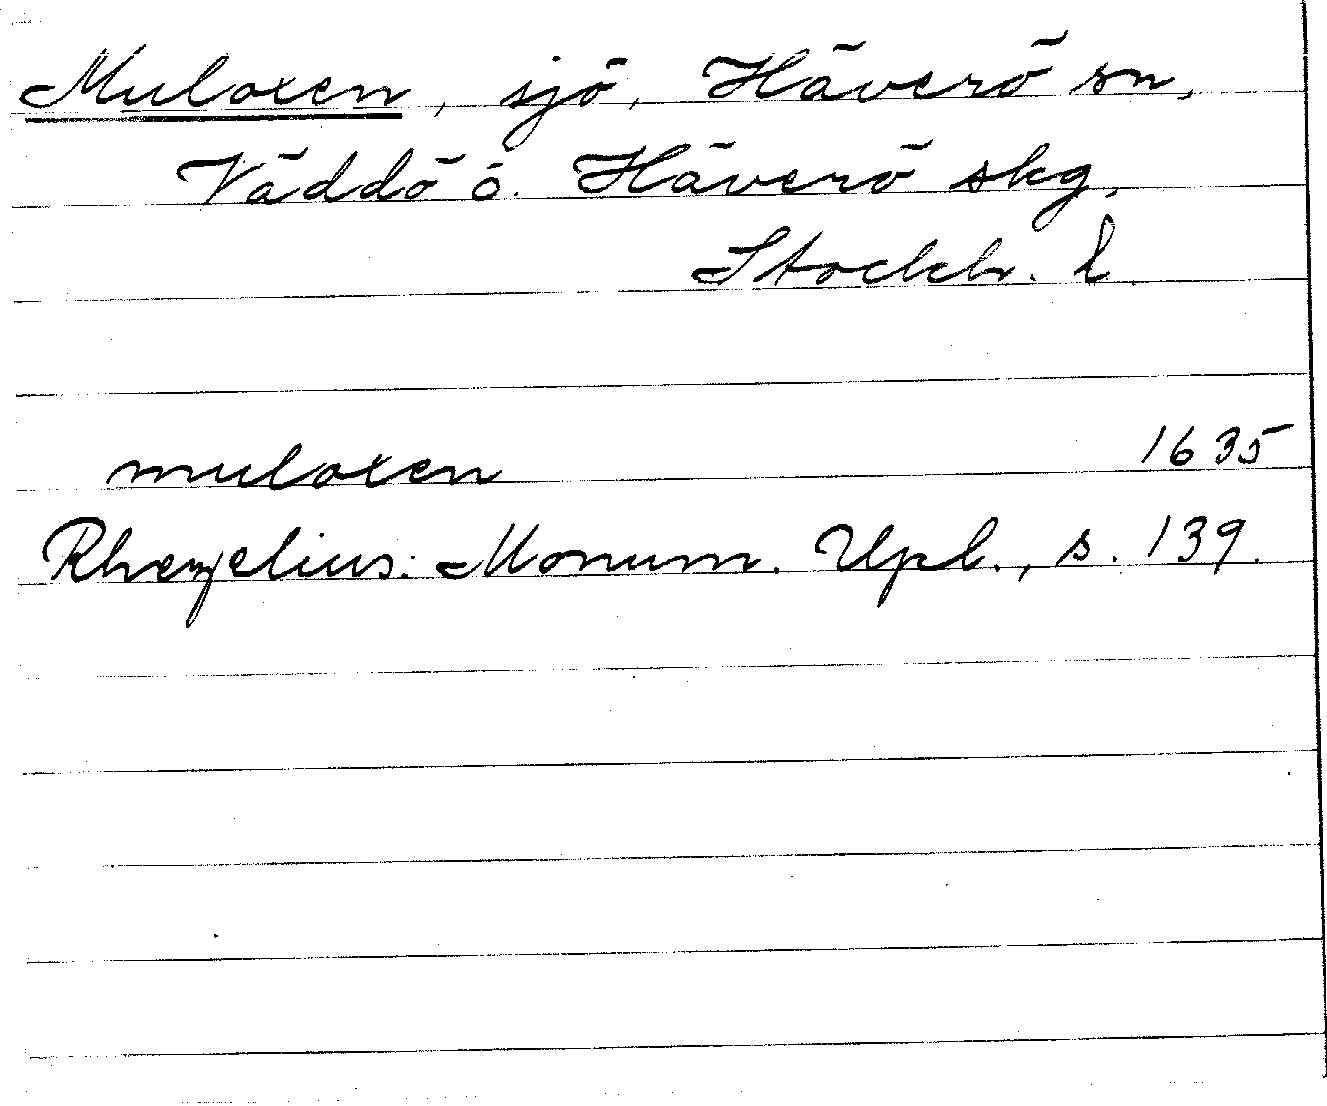 Muloxen, sjö, Häverö sn,
Väddö o. Häverö skg,
Stockh. l.
muloxen 1635
Rhezelius: Monum. Upl., s. 139.